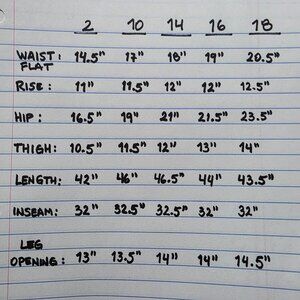 2 10 14 16 18
WAIST: 14.5" 17" 18" 19" 20.5"
FLAT
RISE: 11" 11.5" 12" 12" 12.5"
HIP: 16.5" 19" 21" 21.5" 23.5"
THIGH: 10.5" 11.5" 12" 13" 14"
LENGTH: 42" 46" 46.5" 44" 43.5"
INSEAM: 32" 32.5" 32.5" 32" 32"
LEG
OPENING: 13" 13.5" 14" 14" 14.5"